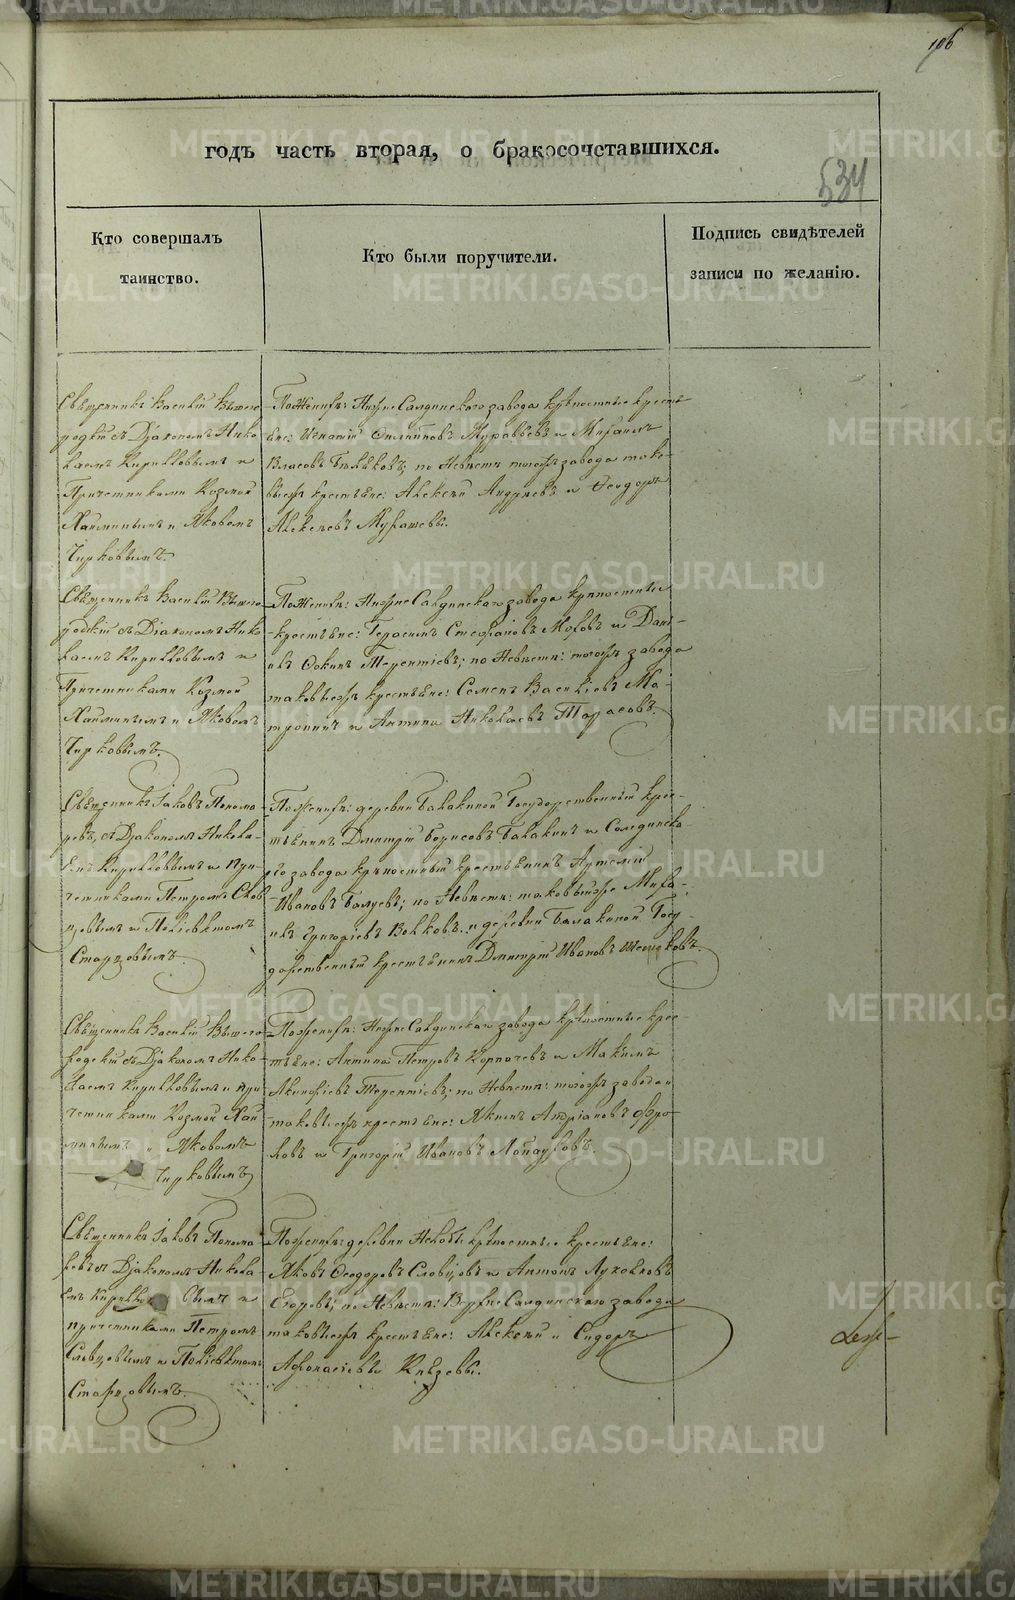 106
годъ часть вторая, о бракосочетавшихся.
534
Кто совершалъ
таинство.
Кто были поручители.
Подпись свидѣтелей
записи по желанію.
Священникъ Василій Вышего
родскій съ Діакономъ Нико
лаемъ Кирилловымъ и
Причетниками Козмой
и Яковомъ
Чирковымъ.
По Женихѣ: Нижнесалдинскаго завода крѣпостные кресть
яне: Игнатій Филиповъ Муравьевъ и Михаилъ
Власовъ по Невѣстѣ тогожъ завода тако
выежъ крестьяне: Алексѣй Андреевъ и Ѳеодоръ
Алексѣевъ
Священникъ Василій Вышего
родскій съ Діакономъ Нико
лаемъ Кирилловымъ и
Причетниками Козмой
и Яковомъ
Чирковымъ.
По Женихѣ: Нижнесалдинскаго завода крѣпостные
крестьяне: Герасимъ Стефановъ и Дани
илъ Ѳокинъ Терентіевъ; по Невѣстѣ: тогожъ завода
таковыежъ крестьяне: Семенъ Василіевъ Ма
тронинъ и Антипа Николаевъ Тарасовъ.
Священникъ Іаковъ Понома
ревъ, съ Діакономъ Никола
емъ Кирилловымъ и При
четниками Петромъ Слов
цовымъ и Поліевктомъ
Старцовымъ.
По Женихѣ: деревни Балакиной Государственный крес
тьянинъ Дмитрій Борисовъ Балакинъ и Салдинска
го завода крѣпостный крестьянинъ Артемій
Ивановъ Балуевъ; по Невѣстѣ: таковыеже Миха
илъ Григоріевъ Волковъ и деревни Балакиной Госу
дарственный крестьянинъ Дмитрій Ивановъ
Священникъ Василій Вышего
родскій съ Діакономъ Нико
лаемъ Кирилловымъ и При
четниками Козмой
и Яковомъ
Чирковымъ
По Женихѣ: Нижнесалдинскаго завода крѣпостные крес
тьяне: Антипа Петровъ и Максимъ
Терентіевъ; по Невѣстѣ: тогожъ завода и
таковыежъ крестьяне: Якимъ Андріановъ Фро
ловъ и Григорій Ивановъ
Священникъ Іаковъ Понома
ревъ съ Діакономъ Никола
емъ Кирилловымъ и
причетниками Петромъ
Словцовымъ и Поліевктомъ
Старцовымъ.
По Женихѣ: деревни крѣпостные крестьяне:
Яковъ Ѳеодоровъ Словцовъ и Антонъ
Егоровъ; по Невѣстѣ: Верхнесалдинскаго завода
таковыежъ крестьяне: Алексѣй и Сидоръ
Афонасіевы Князевы.
METRIKI.GASO-URAL.RU